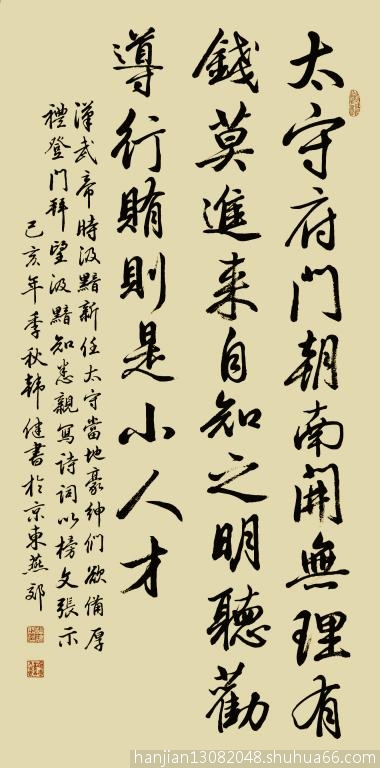 太守府門朝南開無理有
錢莫進来自知之明聽勸
導行賄則是小人才
漢武帝時汲黯新任太守當地豪紳們欲備厚
禮登門拜望汲黯知悉親寫詩詞以榜文張示
己亥年季秋韩健書於京東燕郊
hanjian13082048.shuhua66.com